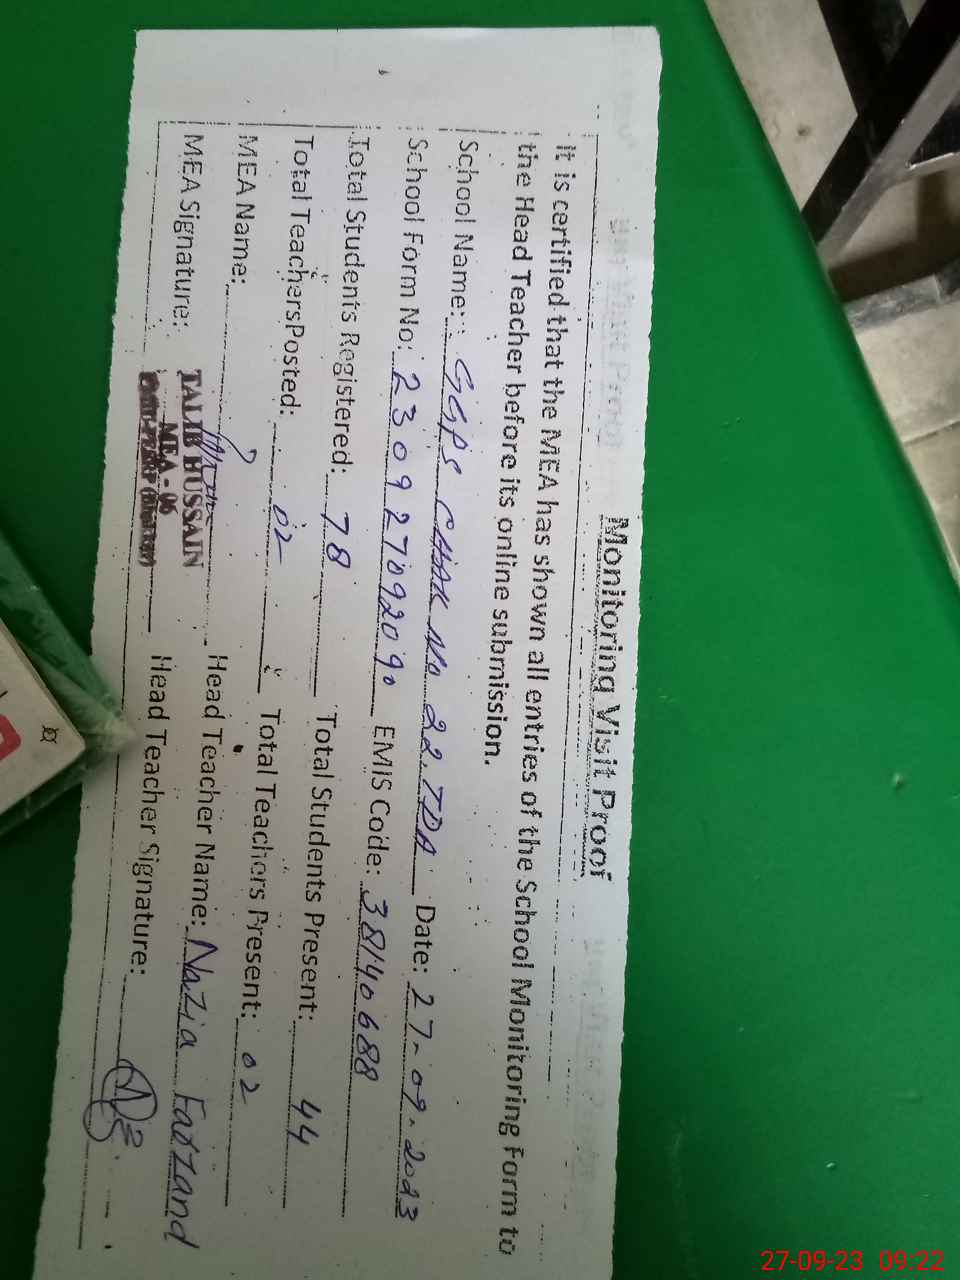 Monitoring Visit Proof
It is certified that the MEA has shown all entries of the School Monitoring Form to
the Head Teacher before its online submission.
School Name: GGPS CHAK No 22.TDA Date: 27-09-2023
School Form No: 23092709209 EMIS Code: 38140688
Total Students Registered: 78 Total Students Present: 44
Total Teachers Posted: 02 Total Teachers Present: 02
MEA Name: Head Teacher Name: Nazia Farzand
MEA Signature: Head Teacher Signature:
TALIB HUSSAIN
MEA - 06
27-09-23 09:22